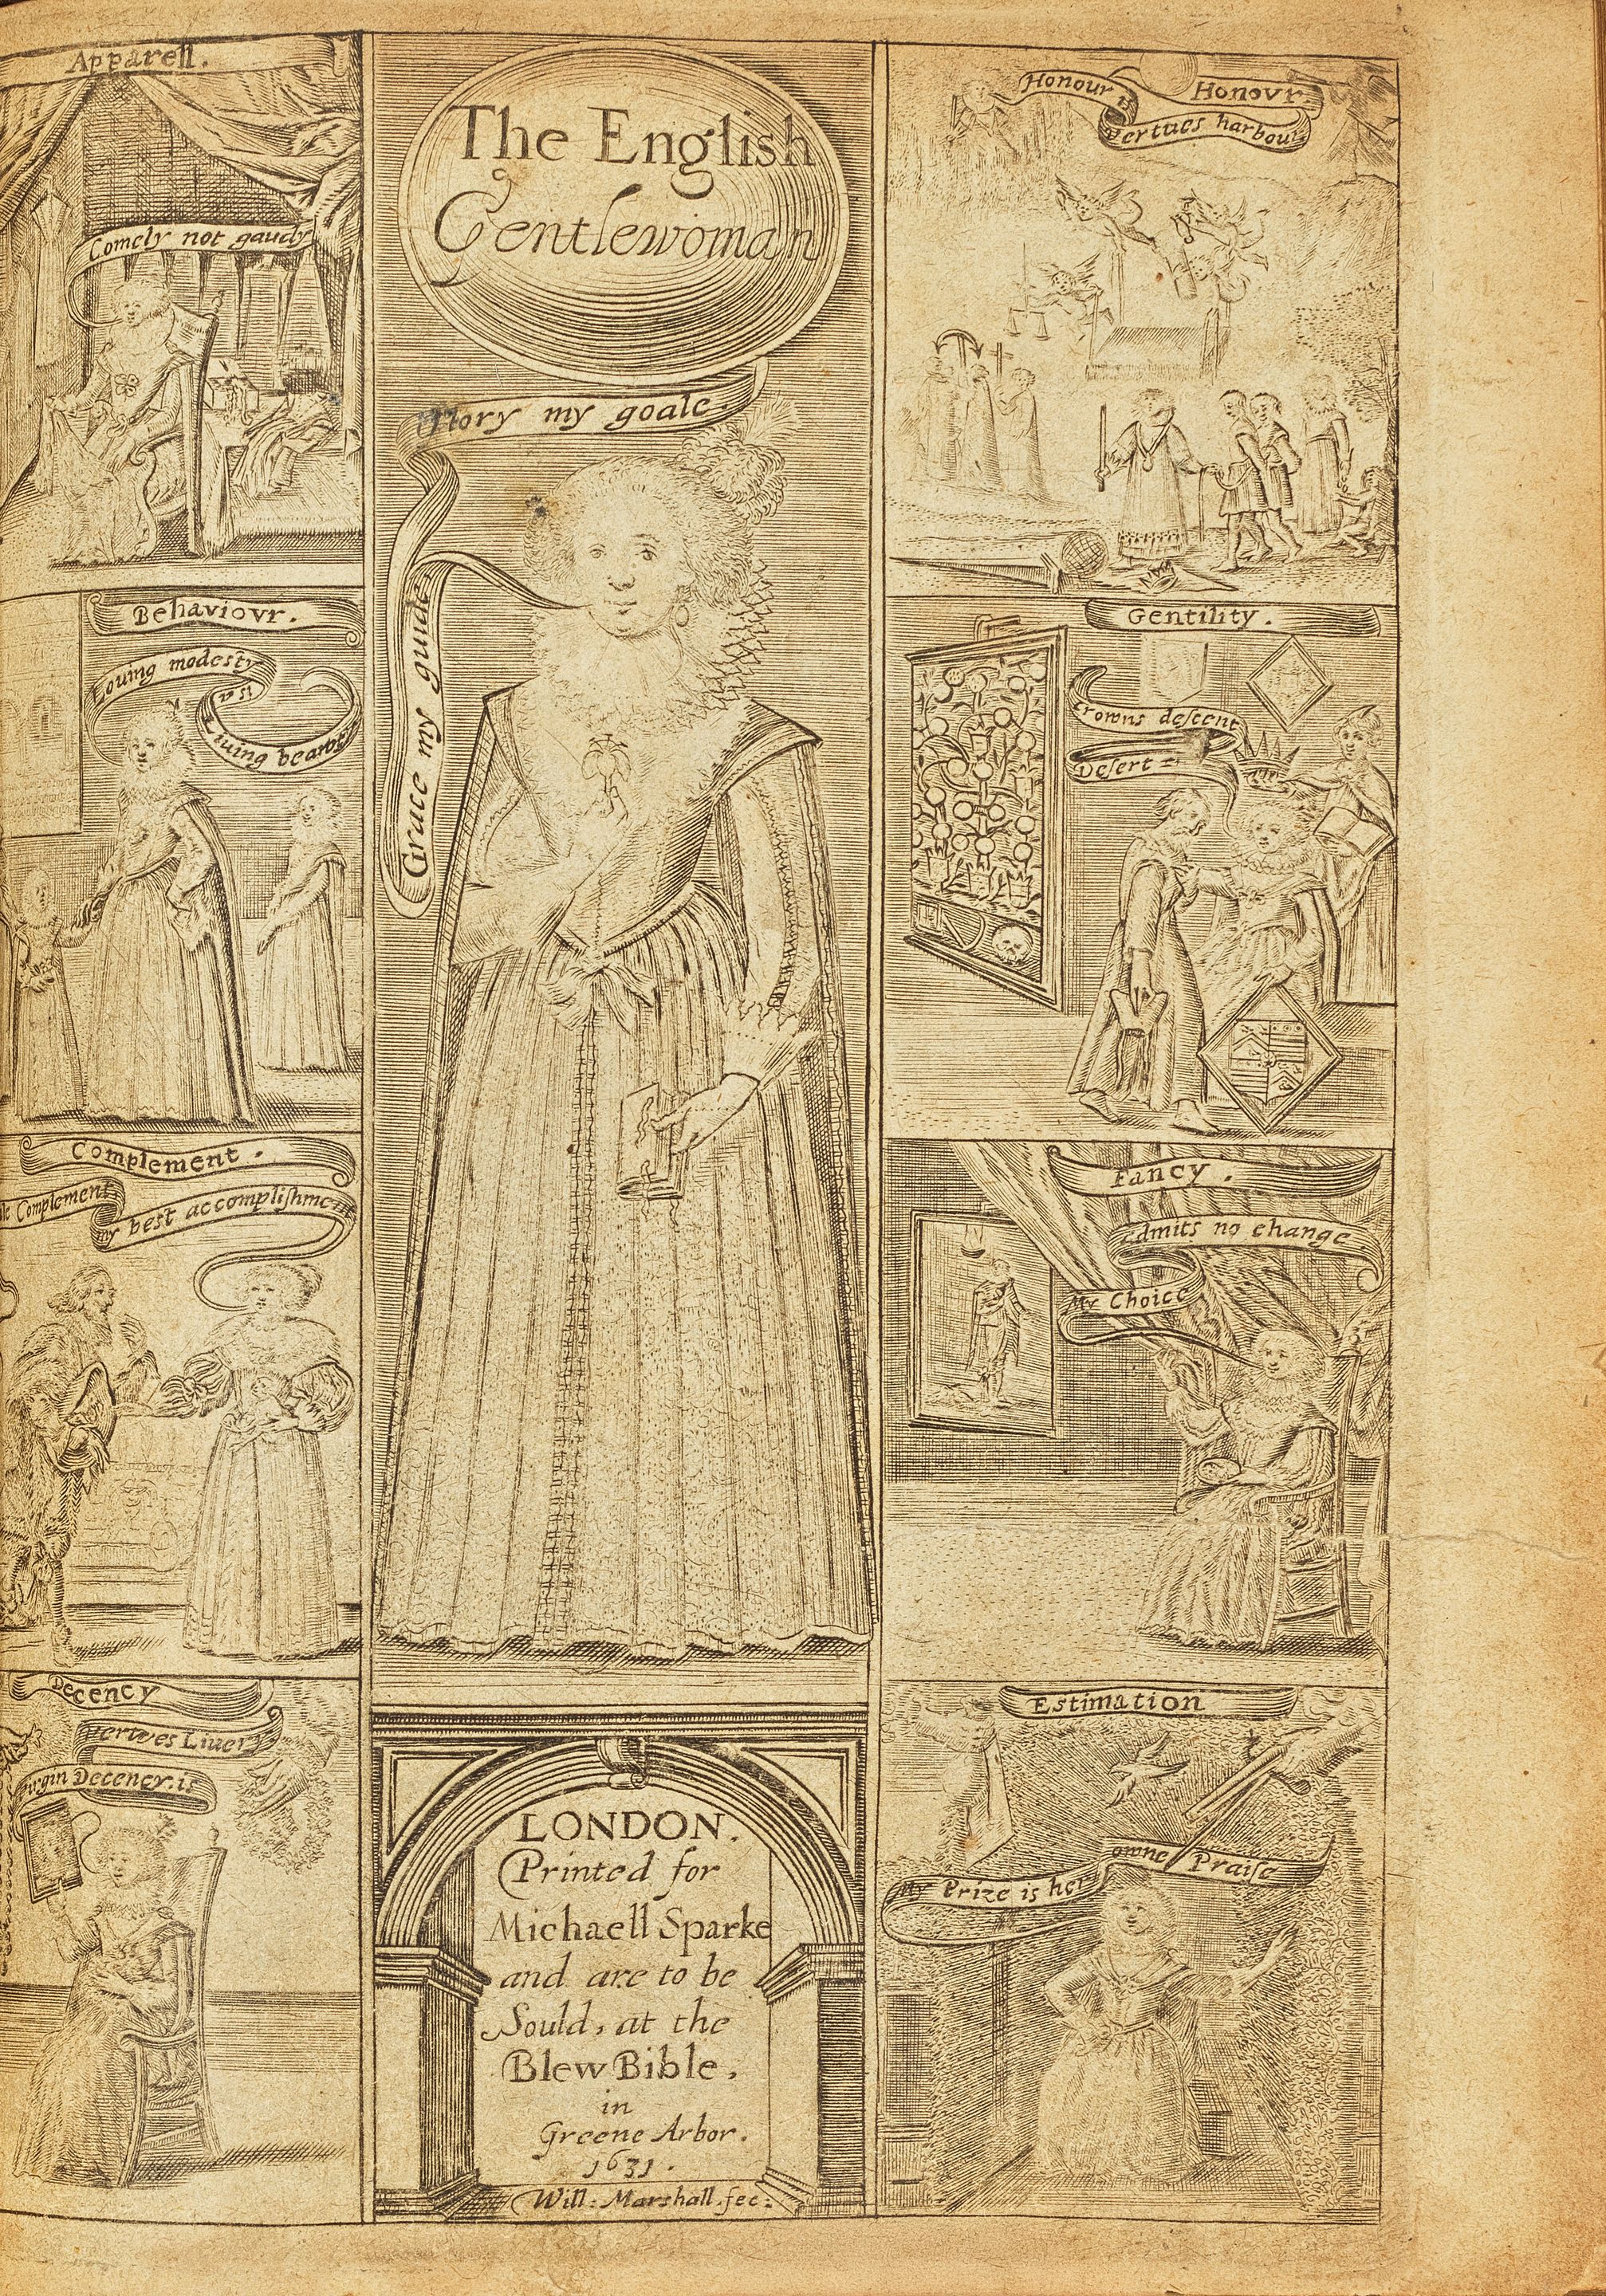 Apparell.
Comely not gaudy
Behaviovr.
Louing modesty
is a
Liuing beauty
Complement.
Complement
my best accomplishment
Decency
Vertues Liuery
Virgin Decency is
The English
Gentlewoman
Glory my goale.
Grace my guide
LONDON.
Printed for
Michaell Sparke
and are to be
Sould, at the
Blew Bible,
in
Greene Arbor.
1631.
Will: Marshall. fec:
Honovr
Honour is
Vertues harbour
Gentility.
Crowns descent
Desert
Fancy.
Admits no change
My Choice
Estimation
My Prize is her owne Praise